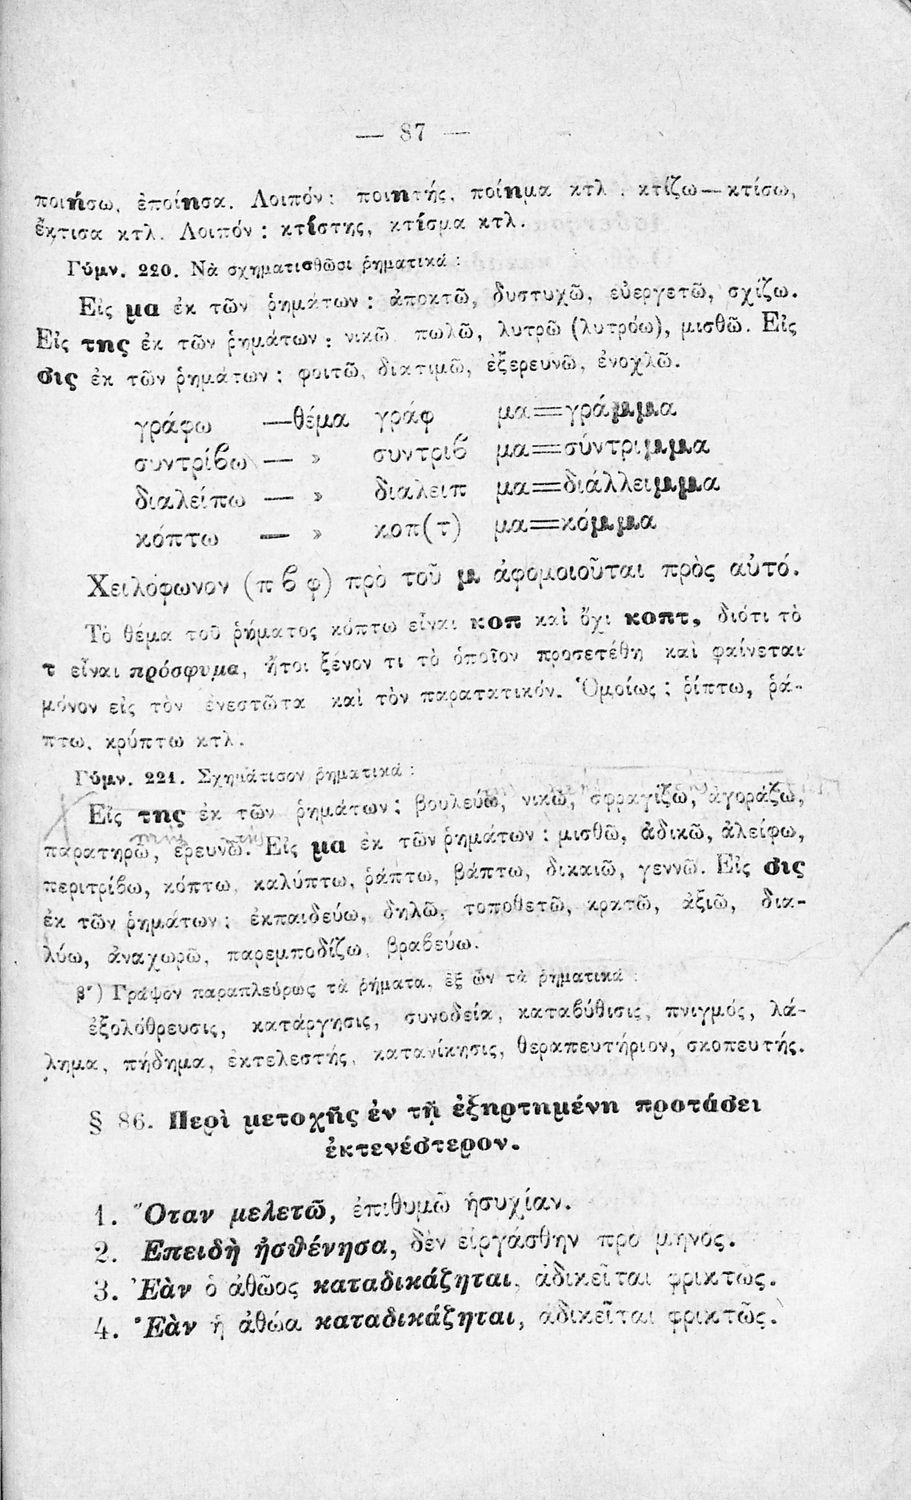 — 87 —
ποιήσω, ἐποίησα. Λοιπόν: ποιητής, ποίημα κτλ. κτίζω—κτίσω,
ἔκτισα κτλ. Λοιπόν: κτίστης, κτίσμα κτλ.
Γύμν. 220. Νὰ σχηματισθῶσι ῥηματικά:
Εἰς μα ἐκ τῶν ῥημάτων: ἀποκτῶ, δυστυχῶ, εὐεργετῶ, σχίζω.
Εἰς της ἐκ τῶν ῥημάτων: νικῶ, πωλῶ, λυτρῶ (λυτρόω), μισθῶ. Εἰς
σις ἐκ τῶν ῥημάτων: φοιτῶ, διατιμῶ, ἐξερευνῶ, ἐνοχλῶ.
γράφω —θέμα γράφ μα=γράμμα
συντρίβω — » συντριβ μα=σύντριμμα
διαλείπω — » διαλειπ μα=διάλλειμμα
κόπτω — » κοπ(τ) μα=κόμμα
Χειλόφωνον (π β φ) πρὸ τοῦ μ ἀφομοιοῦται πρὸς αὐτό.
Τὸ θέμα τοῦ ῥήματος κόπτω εἶναι κοπ καὶ ὄχι κοπτ, διότι τὸ
τ εἶναι πρόσφυμα, ἤτοι ξένον τι τὸ ὁποῖον προσετέθη καὶ φαίνεται
μόνον εἰς τὸν ἐνεστῶτα καὶ τὸν παρατατικόν. Ὁμοίως: ῥίπτω, ῥά-
πτω, κρύπτω κτλ.
Γύμν. 221. Σχημάτισον ῥηματικά:
Εἰς της ἐκ τῶν ῥημάτων: βουλεύω, νικῶ, σφραγίζω, ἀγοράζω,
παρατηρῶ, ἐρευνῶ. Εἰς μα ἐκ τῶν ῥημάτων: μισθῶ, ἀδικῶ, ἀλείφω,
περιτρίβω, κόπτω, καλύπτω, ῥάπτω, βάπτω, δικαιῶ, γεννῶ. Εἰς σις
ἐκ τῶν ῥημάτων: ἐκπαιδεύω, δηλῶ, τοποθετῶ, κρατῶ, ἀξιῶ, δια-
λύω, ἀναχωρῶ, παρεμποδίζω, βραβεύω.
β') Γράψον παραπλεύρως τὰ ῥήματα, ἐξ ὧν τὰ ῥηματικά:
ἐξολόθρευσις, κατάργησις, συνοδεία, καταβύθισις, πνιγμός, λά-
λημα, πήδημα, ἐκτελεστής, κατανίκησις, θεραπευτήριον, σκοπευτής.
§ 86. Περὶ μετοχῆς ἐν τῇ ἐξηρτημένῃ προτάσει
ἐκτενέστερον.
1. Ὅταν μελετῶ, ἐπιθυμῶ ἡσυχίαν.
2. Ἐπειδὴ ἠσθένησα, δὲν εἰργάσθην πρὸ μηνός.
3. Ἐὰν ὁ ἀθῶος καταδικάζηται, ἀδικεῖται φρικτῶς.
4. Ἐὰν ἡ ἀθώα καταδικάζηται, ἀδικεῖται φρικτῶς.